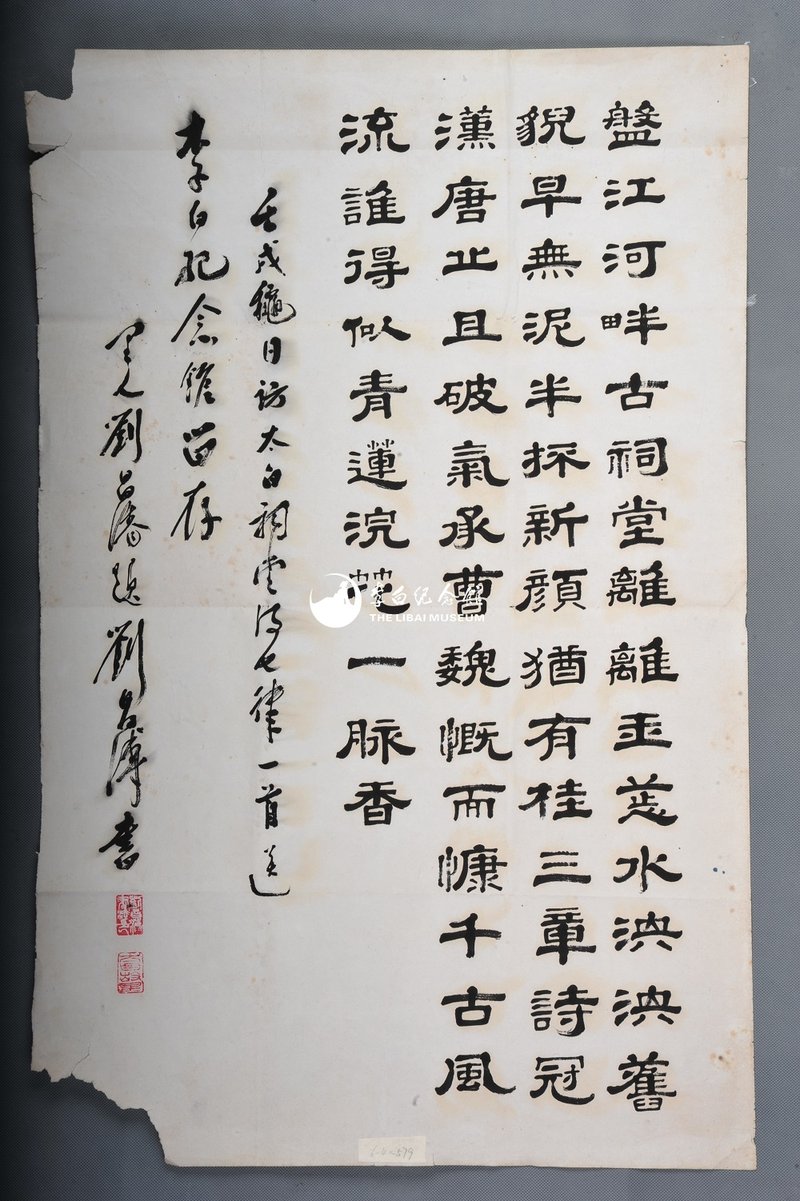 盤江河畔古祠堂離離玉蕊水泱泱舊
貌早無泥半抔新顏猶有桂三章詩冠
漢唐止且破氣承曹魏慨而慷千古風
流誰得似青蓮浣地一脉香
壬戌龝日訪太白祠堂得七律一首送
李白紀念館留存
里人劉題劉書
李白纪念馆
THE LIBAI MUSEUM